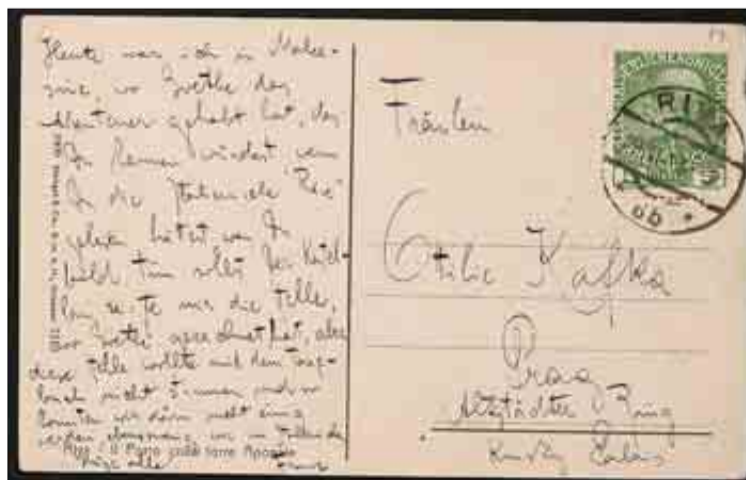 Heute war ich in Malce-
sine, wo Goethe das
Abenteuer gehabt hat, das
Du kennen würdest, wenn
Du die Italienische Reise
gelesen hättest was Du
bald tun sollst Der Kastel-
lan zeigte mir die Stelle,
wo Goethe gezeichnet hat, aber
diese Stelle wollte mit dem Tage-
buch nicht stimmen und so
konnten wir darin nicht einig
werden ebensowenig wie im
Grüße alle
Franz
Riva
Fräulein
Ottilie Kafka
Prag
Altstädter Ring
Palais
RIVA